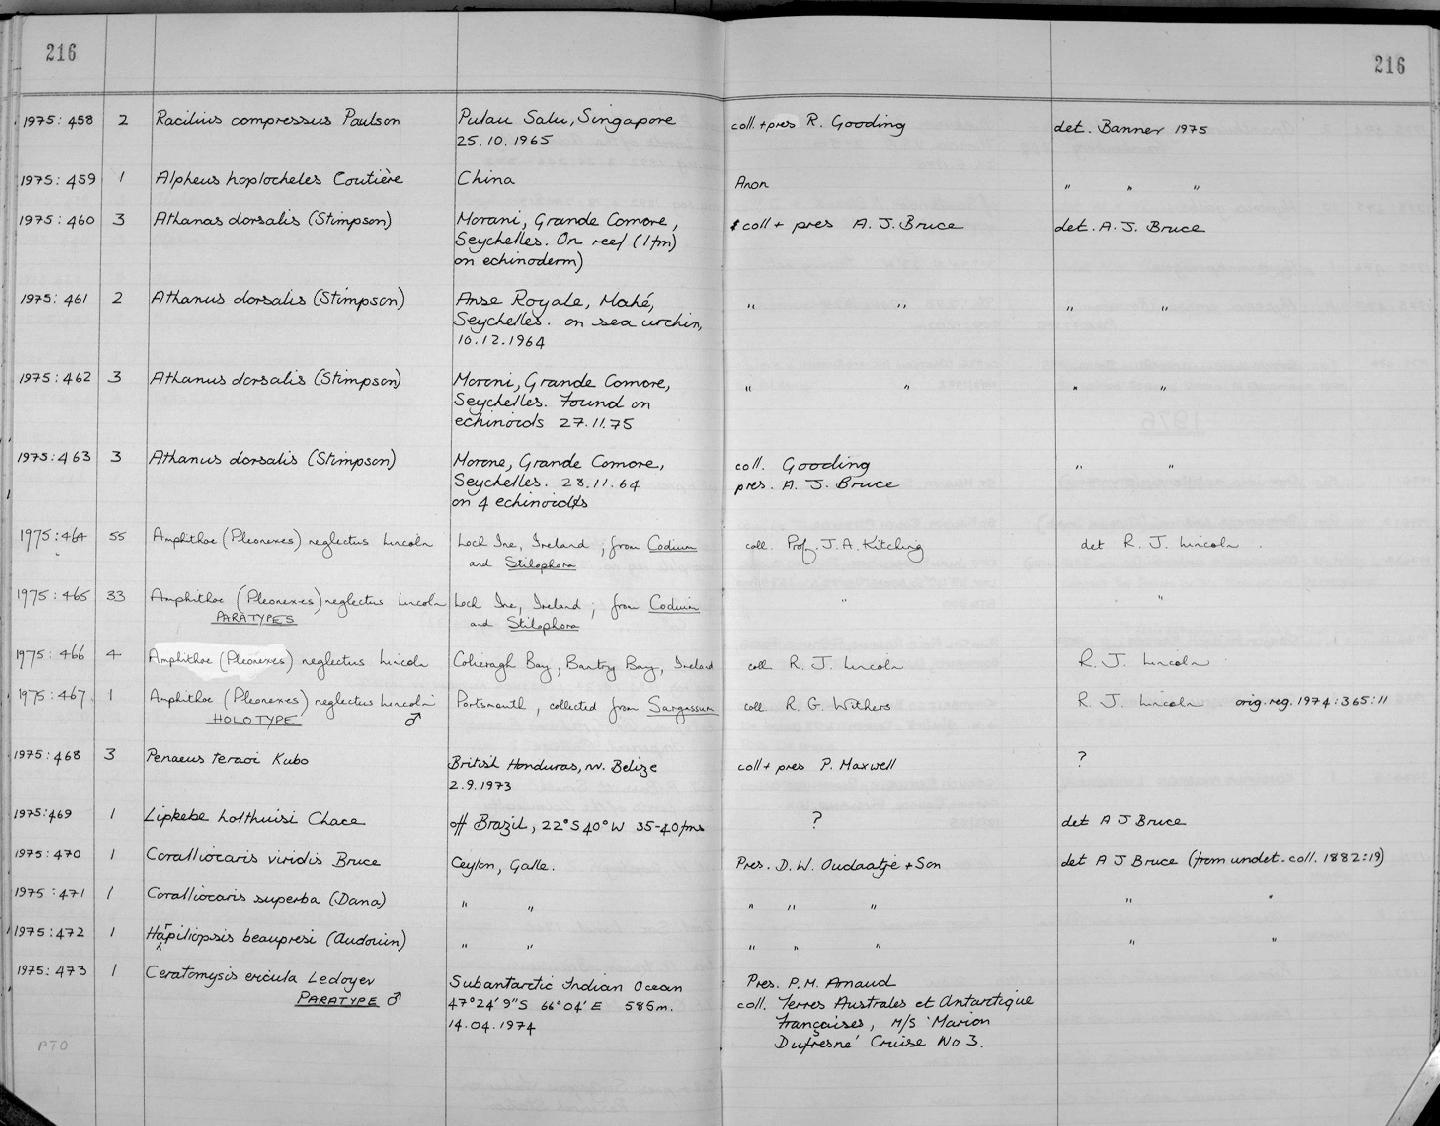 216
216
1975:458 2 Racilius compressus Paulson Pulau Salu, Singapore coll.+pres R. Gooding det. Banner 1975
25.10.1965
1975:459 1 Alpheus hoplocheles Coutière China Anon " " "
1975:460 3 Athanas dorsalis (Stimpson) Moroni, Grande Comore, coll + pres A.J. Bruce det. A.J. Bruce
Seychelles. On reef (1fm)
on echinoderm)
1975:461 2 Athanus dorsalis (Stimpson) Anse Royale, Mahé, " " " "
Seychelles. on sea urchin,
10.12.1964
1975:462 3 Athanus dorsalis (Stimpson) Moroni, Grande Comore, " " " "
Seychelles. Found on
echinoids 27.11.75
1975:463 3 Athanus dorsalis (Stimpson) Morone, Grande Comore, coll. Gooding " "
Seychelles. 28.11.64 pres. A.J. Bruce
on 4 echinoids
1975:464 55 Amphithoe (Pleonexes) neglectus Lincoln Loch Ine, Ireland ; from Codium coll. Prof. J.A. Kitching det R.J. Lincoln.
and Stilophora
1975:465 33 Amphithoe (Pleonexes) neglectus Lincoln Loch Ine, Ireland ; from Codium " "
PARATYPES and Stilophora
1975:466 4 Amphithoe (Pleonexes) neglectus Lincoln Bay, Bantry Bay, Ireland coll R.J. Lincoln R.J. Lincoln
1975:467 1 Amphithoe (Pleonexes) neglectus Lincoln Portsmouth, collected from Sargassum coll R.G. Withers R.J. Lincoln orig. reg. 1974:365:11
HOLOTYPE ♂
1975:468 3 Penaeus teraoi Kubo British Honduras, nr. Belize coll+ pres P. Maxwell ?
2.9.1973
1975:469 1 Lipkebe holthuisi Chace off Brazil, 22°S 40°W 35-40fms ? det A J Bruce
1975:470 1 Coralliocaris viridis Bruce Ceylon, Galle. Pres. D.W. Oudaatje + Son det A J Bruce (from undet. coll. 1882:19)
1975:471 1 Coralliocaris superba (Dana) " " " " " " "
1975:472 1 Harpiliopsis beaupresi (Audouin) " " " " " " "
1975:473 1 Ceratomysis ericula Ledoyer Subantarctic Indian Ocean Pres. P.M. Arnaud
PARATYPE ♂ 47°24'9"S 66°04'E 585m. coll. Terres Australes et Antarctique
14.04.1974 Françaises, M/S 'Marion
Dufresne' Cruise No 3.
PTO